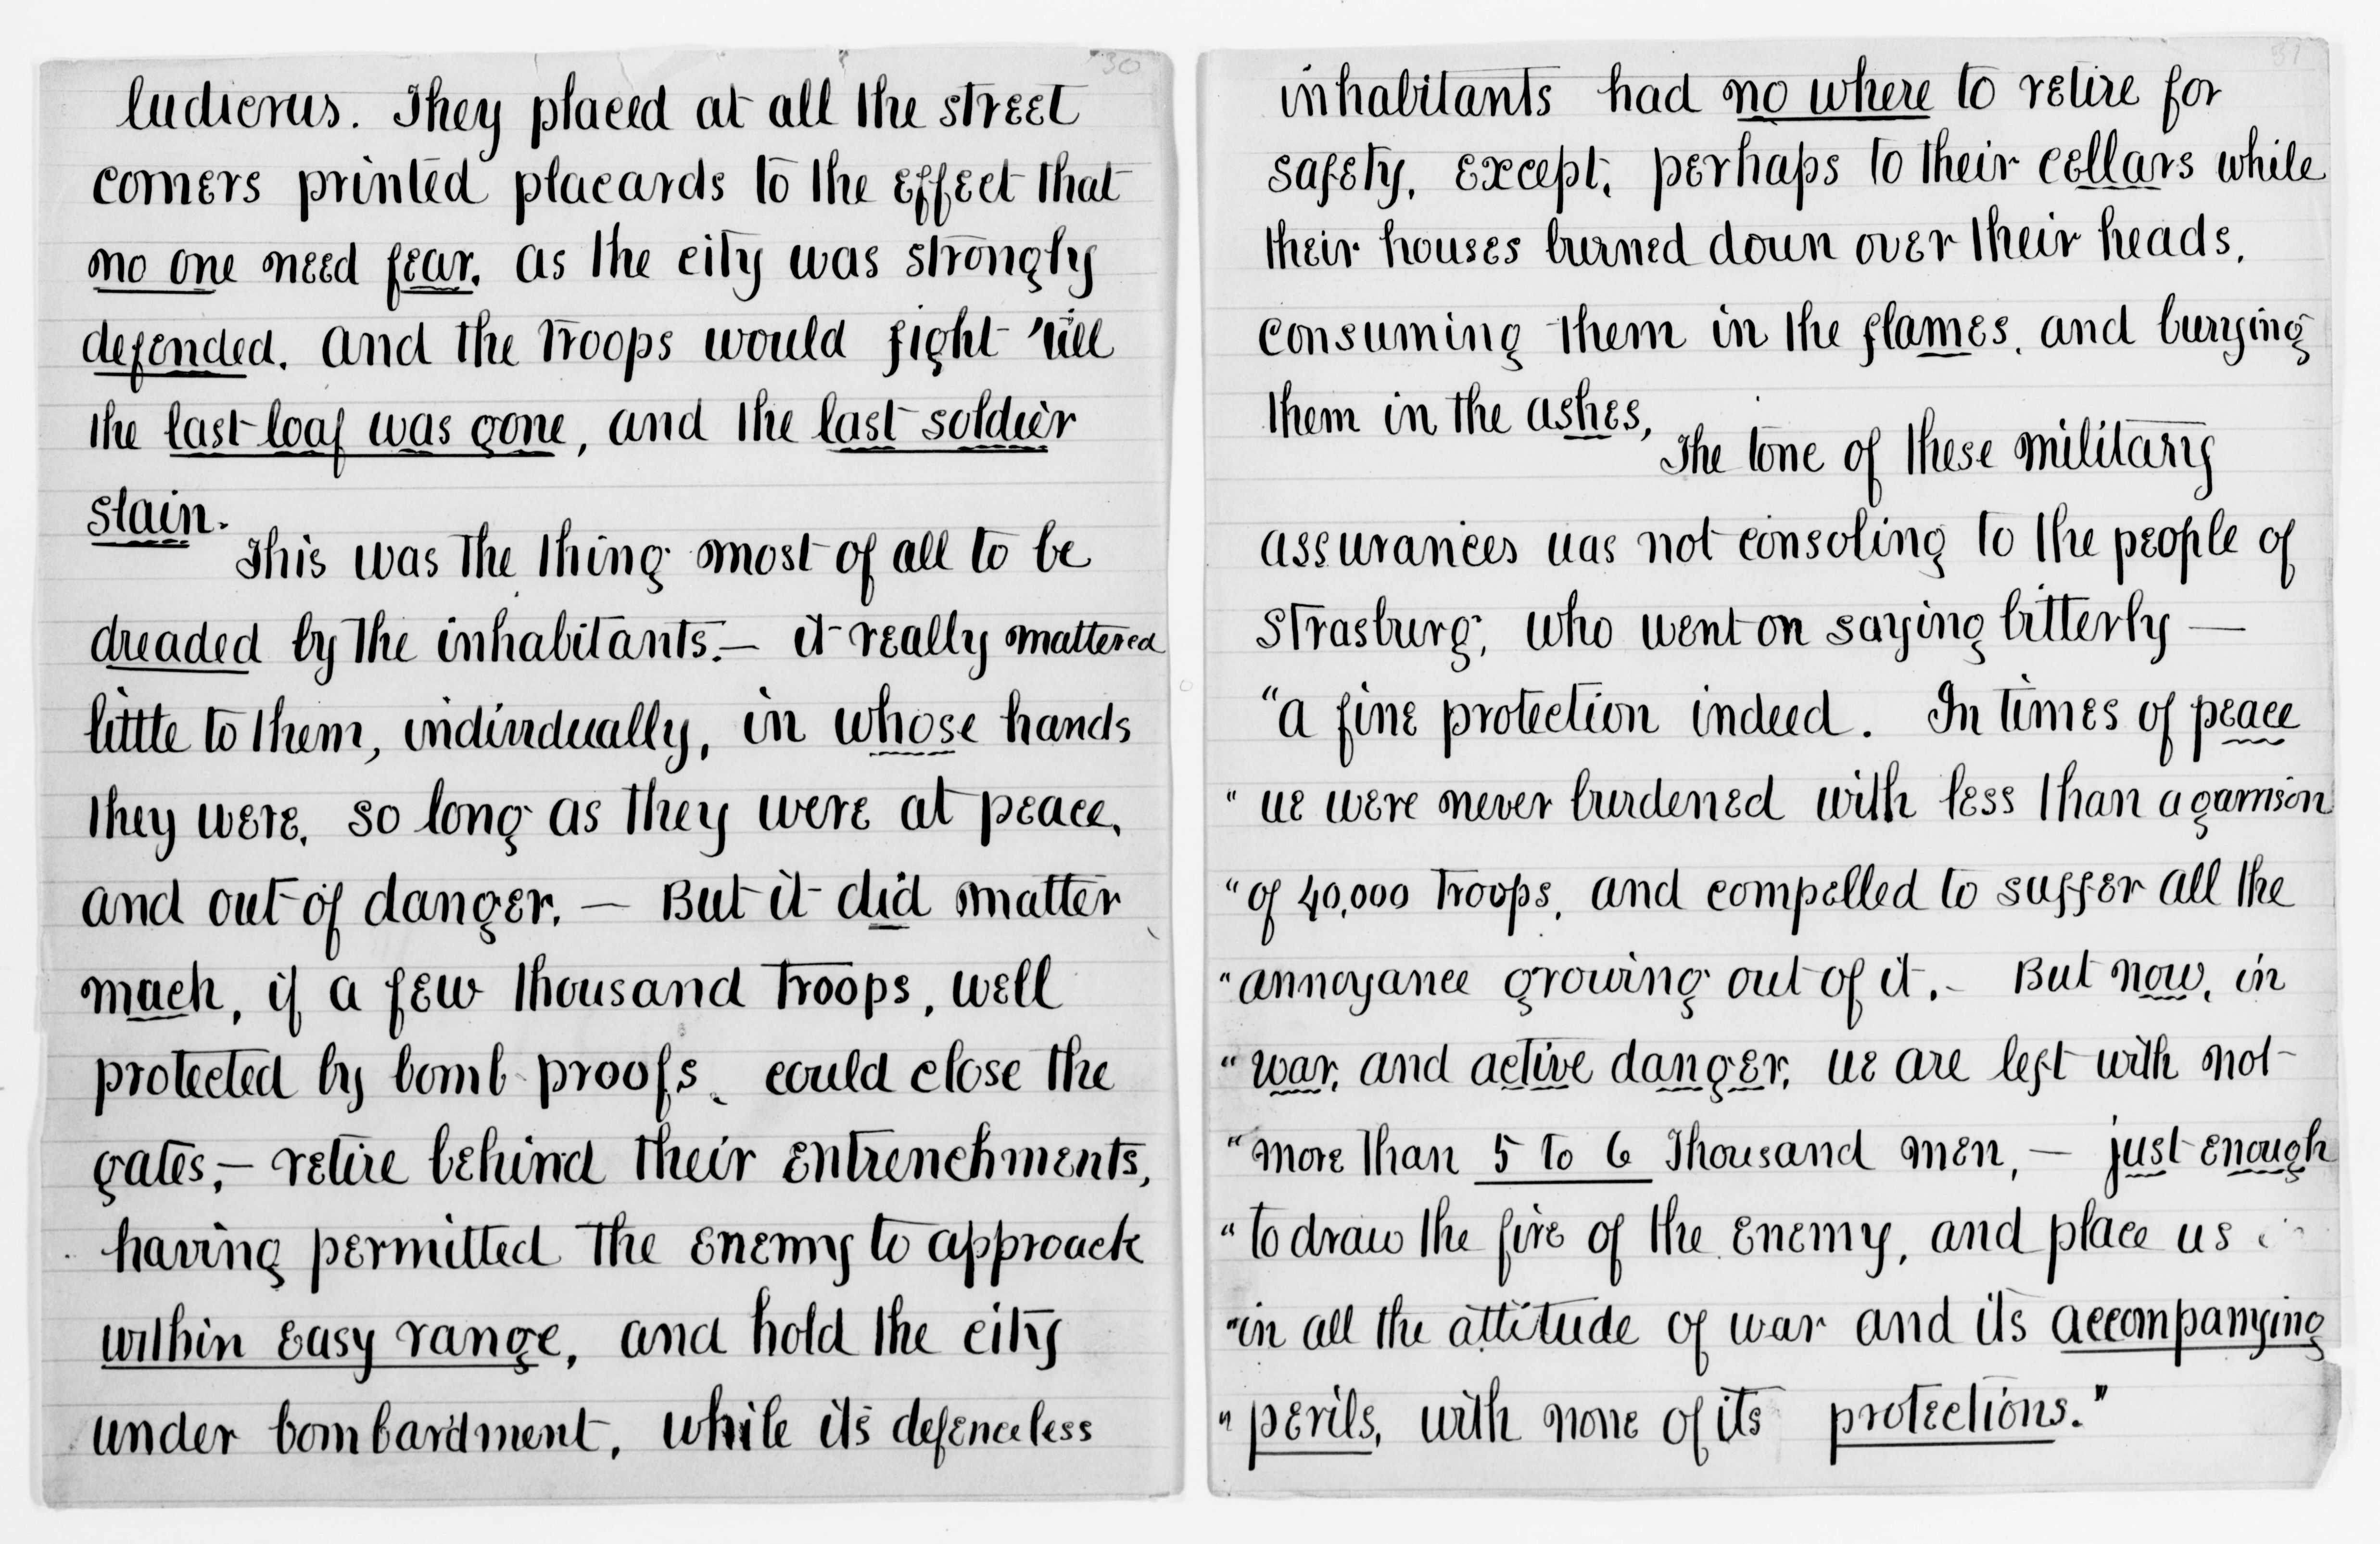 30
ludicrus. They placed at all the street
corners printed placards to the effect that
no one need fear, as the city was strongly
defended, and the troops would fight 'till
the last loaf was gone, and the last soldier
slain.
This was the thing most of all to be
dreaded by the inhabitants.— it really mattered
little to them, individually, in whose hands
they were, so long as they were at peace,
and out of danger. — But it did matter
much, if a few thousand troops, well
protected by bomb-proofs, could close the
gates,— retire behind their entrenchments,
having permitted the enemy to approach
within easy range, and hold the city
under bombardment, while its defenceless
31
inhabitants had no where to retire for
safety, except, perhaps to their cellars while
their houses burned down over their heads,
consuming them in the flames, and burying
them in the ashes,
The tone of these military
assurances was not consoling to the people of
Strasburg, who went on saying bitterly —
"a fine protection indeed. In times of peace
" we were never burdened with less than a garrison
" of 40,000 troops, and compelled to suffer all the
" annoyance growing out of it.— But now, in
" war, and active danger, we are left with not
" more than 5 to 6 Thousand men, — just enough
" to draw the fire of the enemy, and place us
" in all the attitude of war and its accompanying
" perils, with none of its protections."